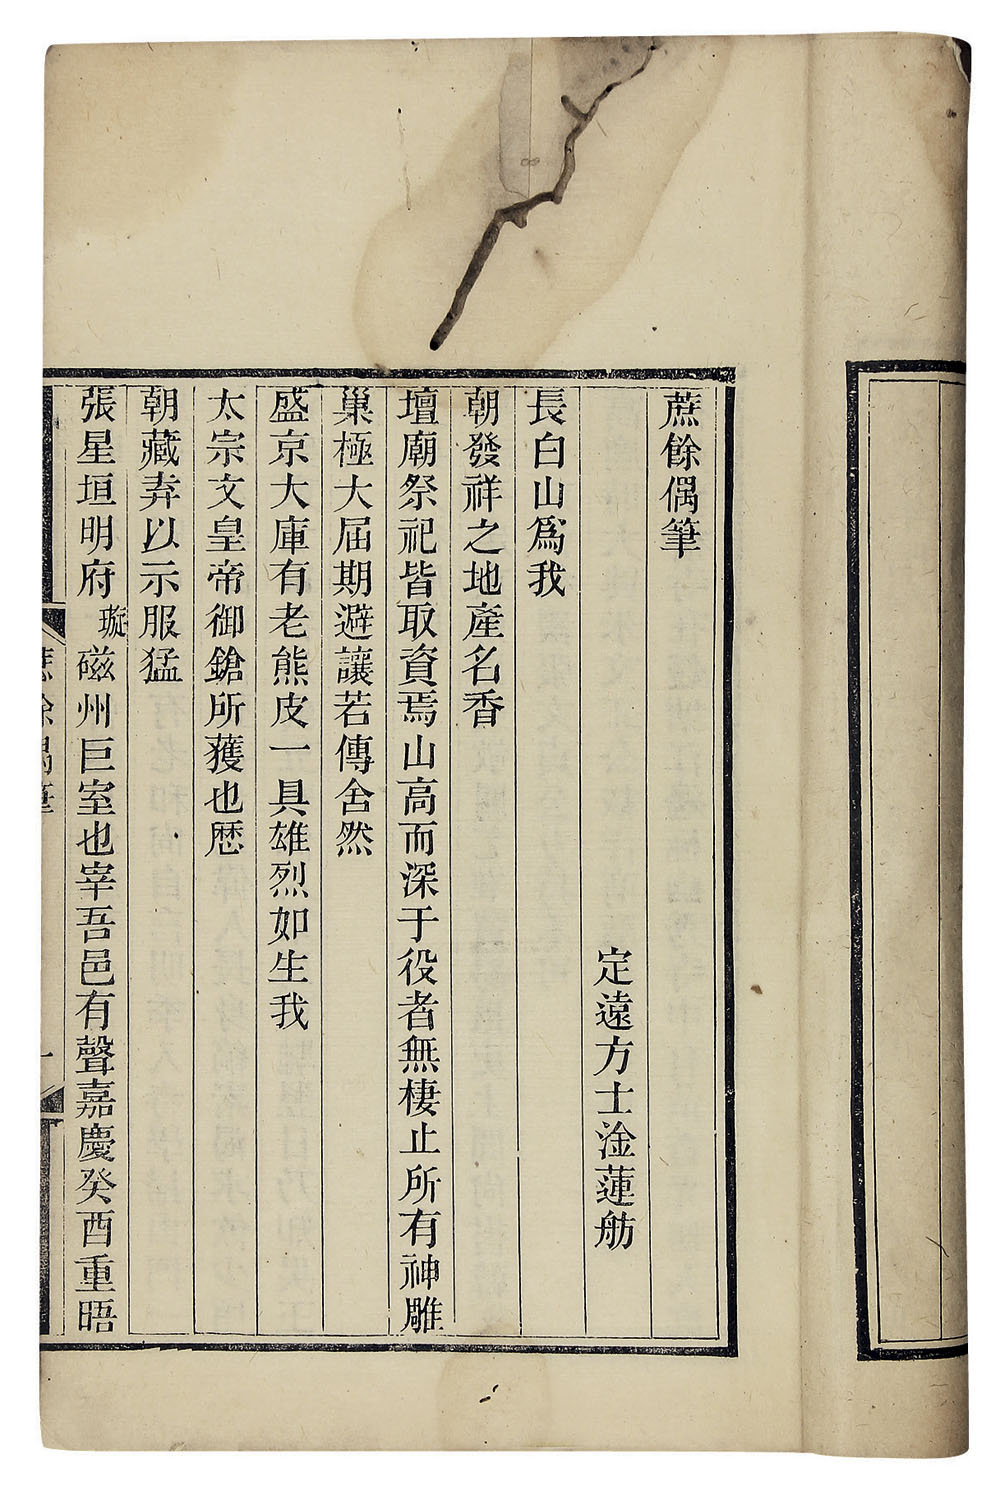 蔗餘偶筆
定遠方士淦蓮舫
長白山爲我
朝發祥之地產名香
壇廟祭祀皆取資焉山高而深于役者無棲止所有神雕
巢極大屆期避讓若傳舍然
盛京大庫有老熊皮一具雄烈如生我
太宗文皇帝御鎗所獲也歷
朝藏弆以示服猛
張星垣明府璇磁州巨室也宰吾邑有聲嘉慶癸酉重晤
蔗餘偶筆
一